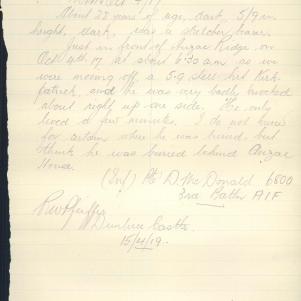 About 28 years of age, dark, 5/9 in
height, clark, was a stretcher bearer.
Just in front of Anzac Ridge, on
Oct 4th 17 at about 6.30 am as we
were moving off a 5.9 shell hit Kirk-
patrick, and he was very badly knocked
about right up one side. He only
lived a few minutes. I do not know
for certain where he was buried but
think he was buried behind Anzac
House.
(Inf) Pt D. McDonald 6800
3rd Battn AIF
Castle
15/4/19.